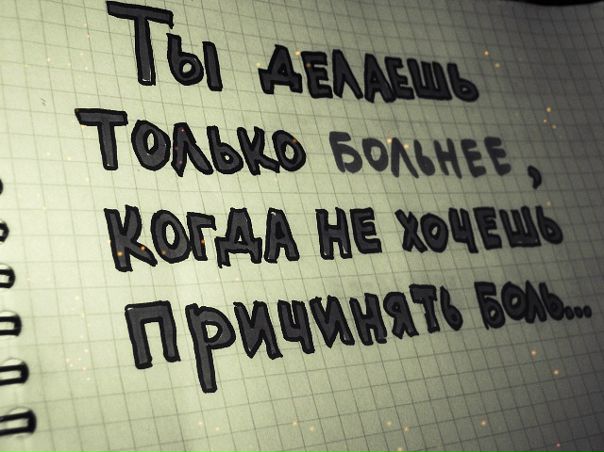 Ты делаешь
только больнее,
когда не хочешь
причинять боль...